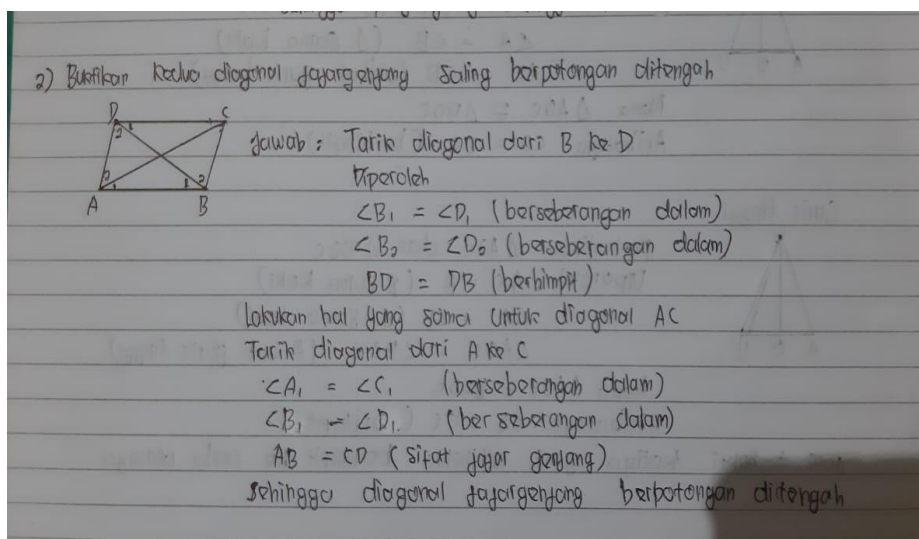 2) Buktikan kedua diagonal jajargenjang saling berpotongan ditengah
D C
A B
2 1
2 1
1 2
Jawab : Tarik diagonal dari B ke D
Diperoleh
∠B₁ = ∠D₁ (berseberangan dalam)
∠B₂ = ∠D₂ (berseberangan dalam)
BD = DB (berhimpit)
Lakukan hal yang sama untuk diagonal AC
Tarik diagonal dari A ke C
∠A₁ = ∠C₁ (berseberangan dalam)
∠B₁ = ∠D₁. (berseberangan dalam)
AB = CD (sifat jajar genjang)
Sehingga diagonal jajargenjang berpotongan ditengah